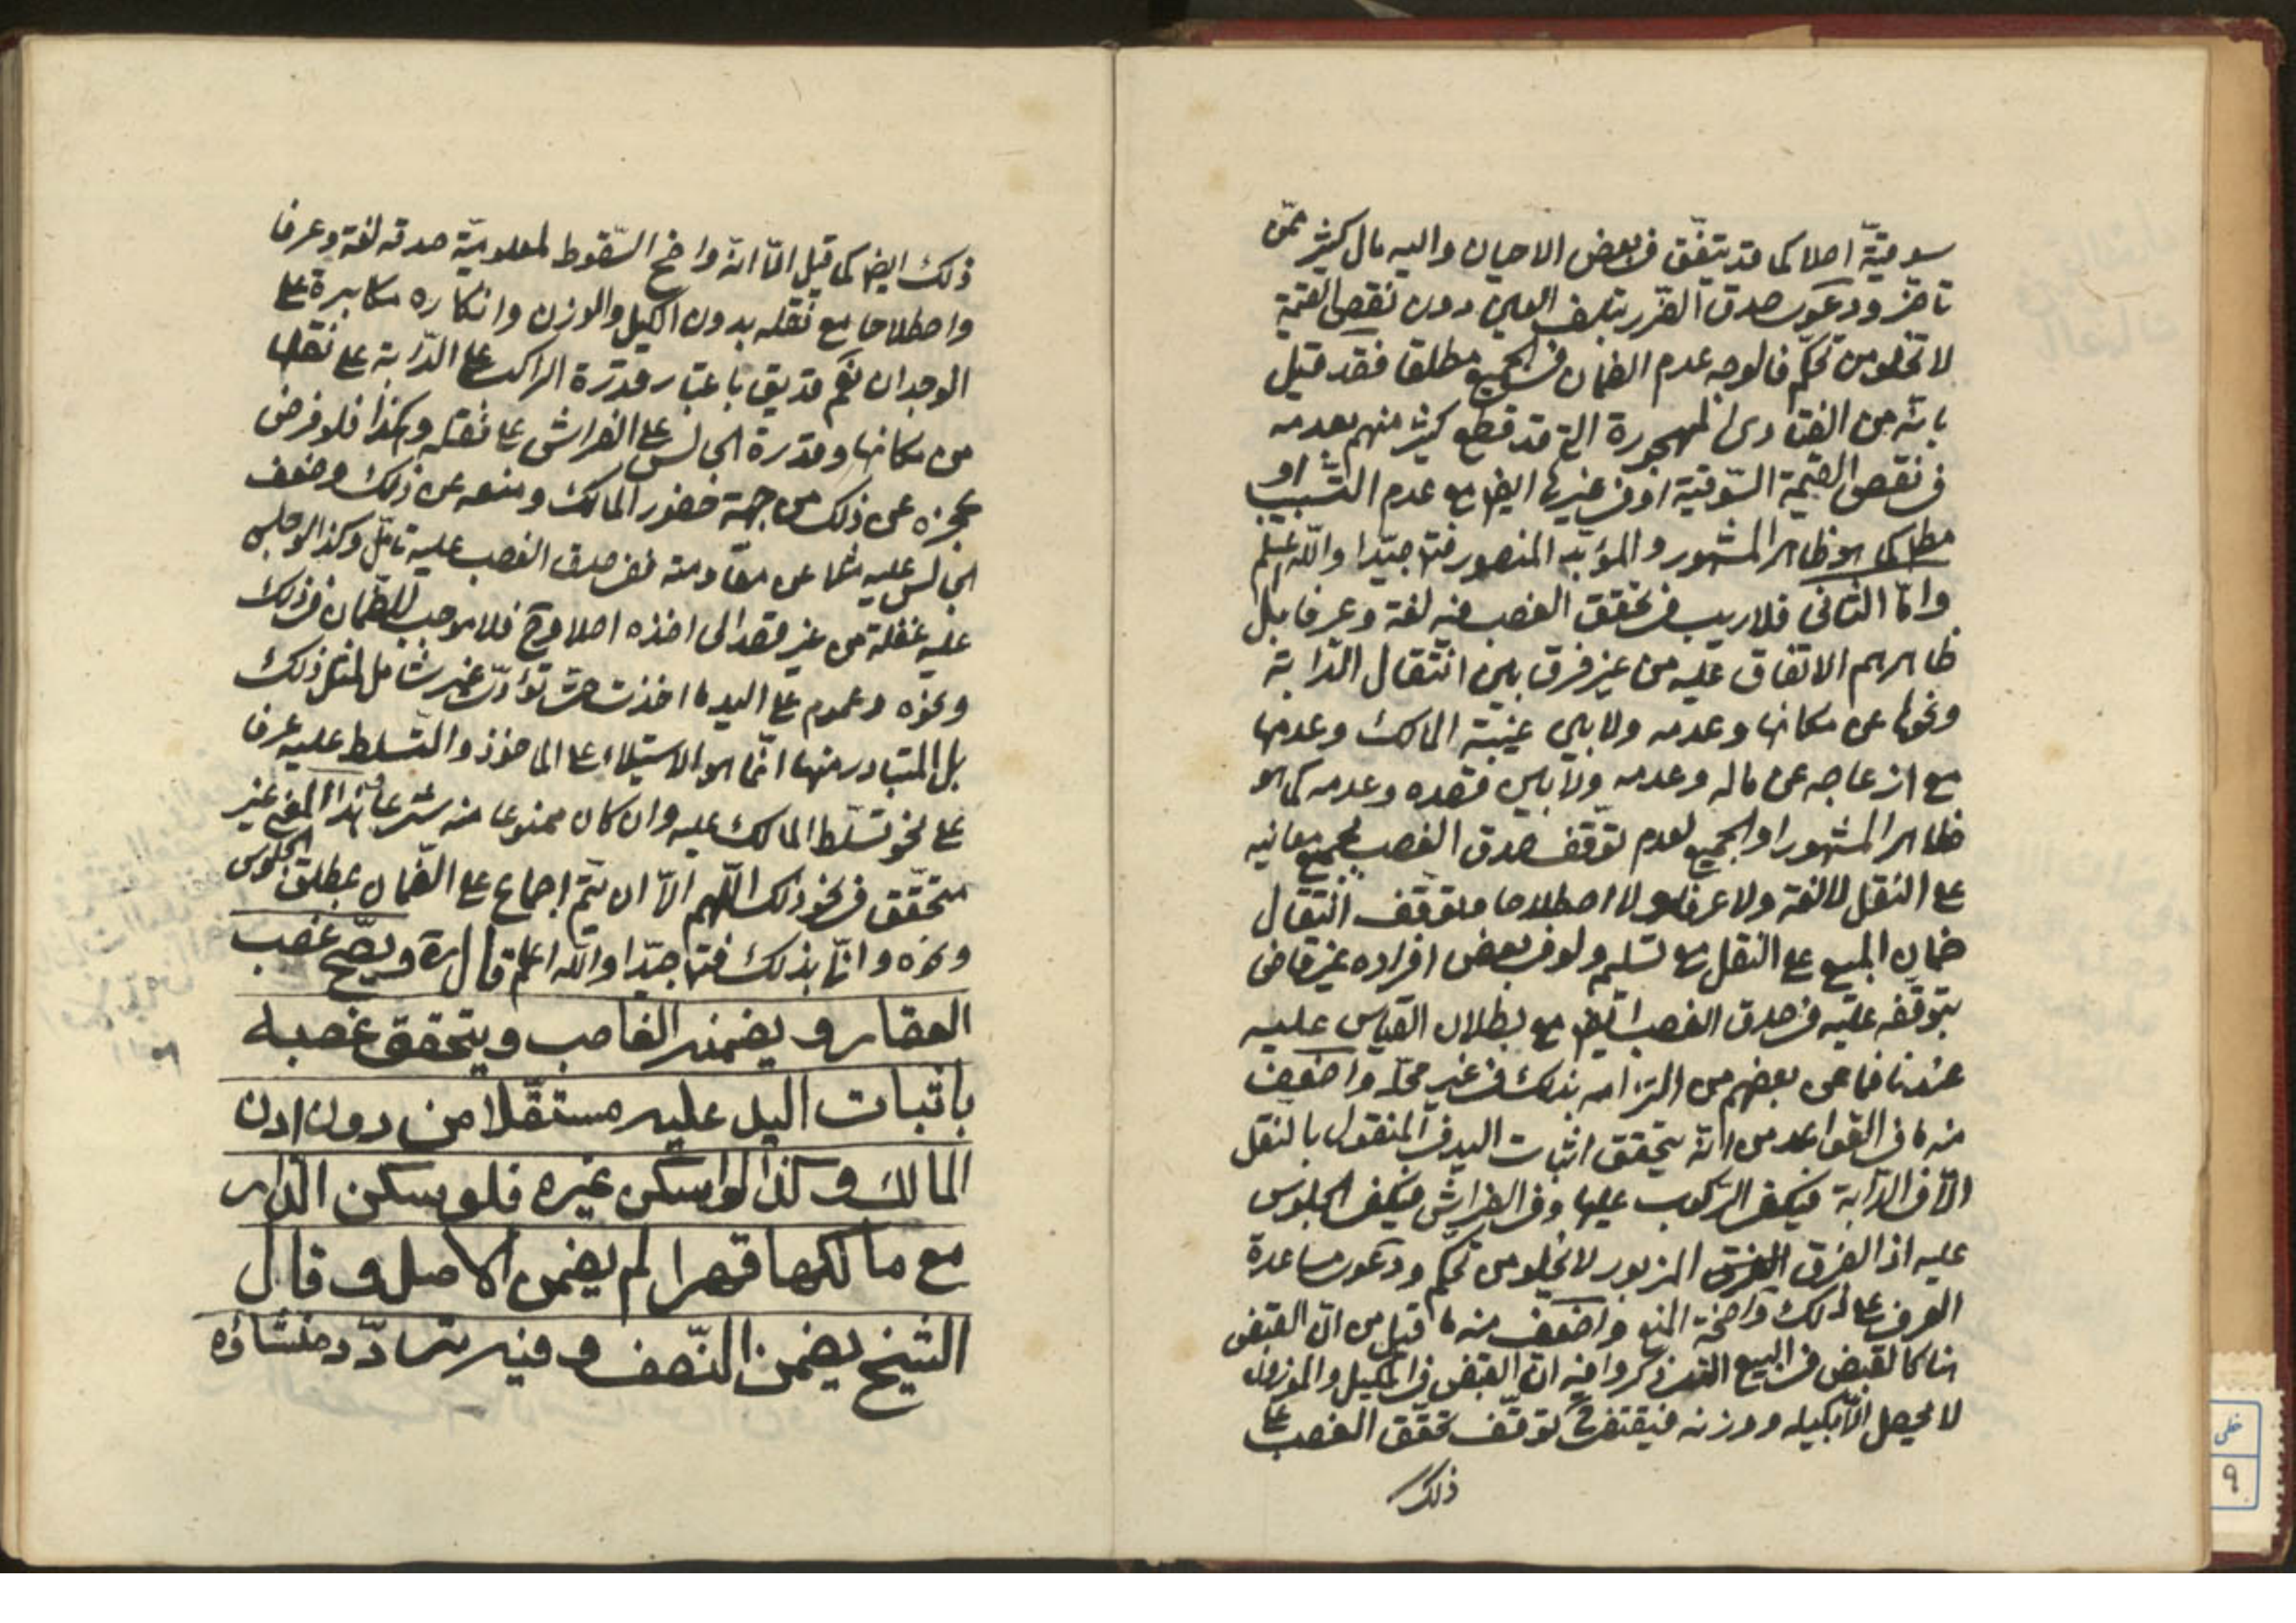 سوقيّة اصلا كما قد يتفّق في بعض الاحيان واليه مال كثير ممّن
تاخر ودعوى صدق الضّرر بتلف العين دون نقص القيمة
لا تخلو من تحكّم فالوجه عدم الضمان في الجميع مطلقا فقد قيل
بانّه من الفتاوى المهجورة التي قد قطع كثير منهم بعدمه
في نقص القيمة السّوقيّة او في غيرها ايضا مع عدم التّسبيب او
مط كما هو ظاهر المشهور والمؤيّد المنصور فتامّل جيّدا واللّه اعلم
وامّا الثاني فلا ريب في تحقق الغصب فيه لغة وعرفا بل
ظاهرهم الاتفاق عليه من غير فرق بين انتقال الدّابة
ونحوها عن مكانها وعدمه ولا بين غيبة المالك وعدمها
مع ازعاجه عن ماله وعدمه ولا بين قصده وعدمه كما هو
ظاهر المشهور او الجميع لعدم توّقف صدق الغصب بجميع معانيه
على النقل لا لغة ولا عرفا ولا اصطلاحا وتوقّف انتقال
ضمان المبيع على النقل مع تسليم ولو في بعض افراده غير قاض
بتوقّفه عليه في صدق الغصب ايضا مع بطلان القياس عليه
عندنا فما عن بعضهم من التزامه بذلك في غير محلّه واضعف
منه ما في القواعد من انّه يتحقق اثبات اليد في المنقول بالنقل
الّا في الدّابة فيكفي الرّكوب عليها وفي الفراش فيكفي الجلوس
عليه اذ الفرق المزبور لا يخلو من تحكّم ودعوى مساعدة
العرف على ذلك واضحة المنع واضعف منه ما قيل من انّ القبض
هنا كالقبض في البيع الذي ذكروا فيه انّ القبض في المكيل والموزون
لا يحصل الّا بكيله ووزنه فيقتضي ح توقّف تحقّق الغصب على
ذلك
ذلك ايضا كما قيل الّا انّه واضح السّقوط لمعلوميّة صدقه لغة وعرفا
واصطلاحا مع نقله بدون الكيل والوزن وانكاره مكابرة على
الوجدان نعم قد يق باعتبار قدرة الراكب على الدّابة على نقلها
من مكانها وقدرة الجالس على الفراش على نقله وهكذا فلو فرض
عجزه عن ذلك من جهة حضور المالك ومنعه عن ذلك وضعف
الجالس عليه مثلا عن مقاومته ففي صدق الغصب عليه تامّل وكذا لو جلس
عليه غفلة من غير قصد الى اخذه اصلا وح فلا موجب للضّمان في ذلك
ونحوه وعموم على اليد ما اخذت حتى تؤدّي غير شامل لمثل ذلك
بل المتبادر منها انّما هو الاستيلاء على الماخوذ والتّسلط عليه عرفا
على نحو تسلّط المالك عليه وان كان ممنوعا منه شرعا وهذا المعنى غير
متحقّق في نحو ذلك اللّهم الّا ان يتّم اجماع على الضّمان بمطلق الجلوس
ونحوه وانّى بذلك فتامل جيّدا واللّه اعلم قال ره ويصّح غصب
العقار ويضمنه الغاصب ويتحقق غصبه
باثبات اليد عليه مستقّلا من دون اذن
المالك وكذا لو اسكن غيره فلو سكن الدّار
مع مالكها قهرا لم يضمن الاصل وقال
الشيخ يضمن النّصف وفيه تردّد ومنشاؤه